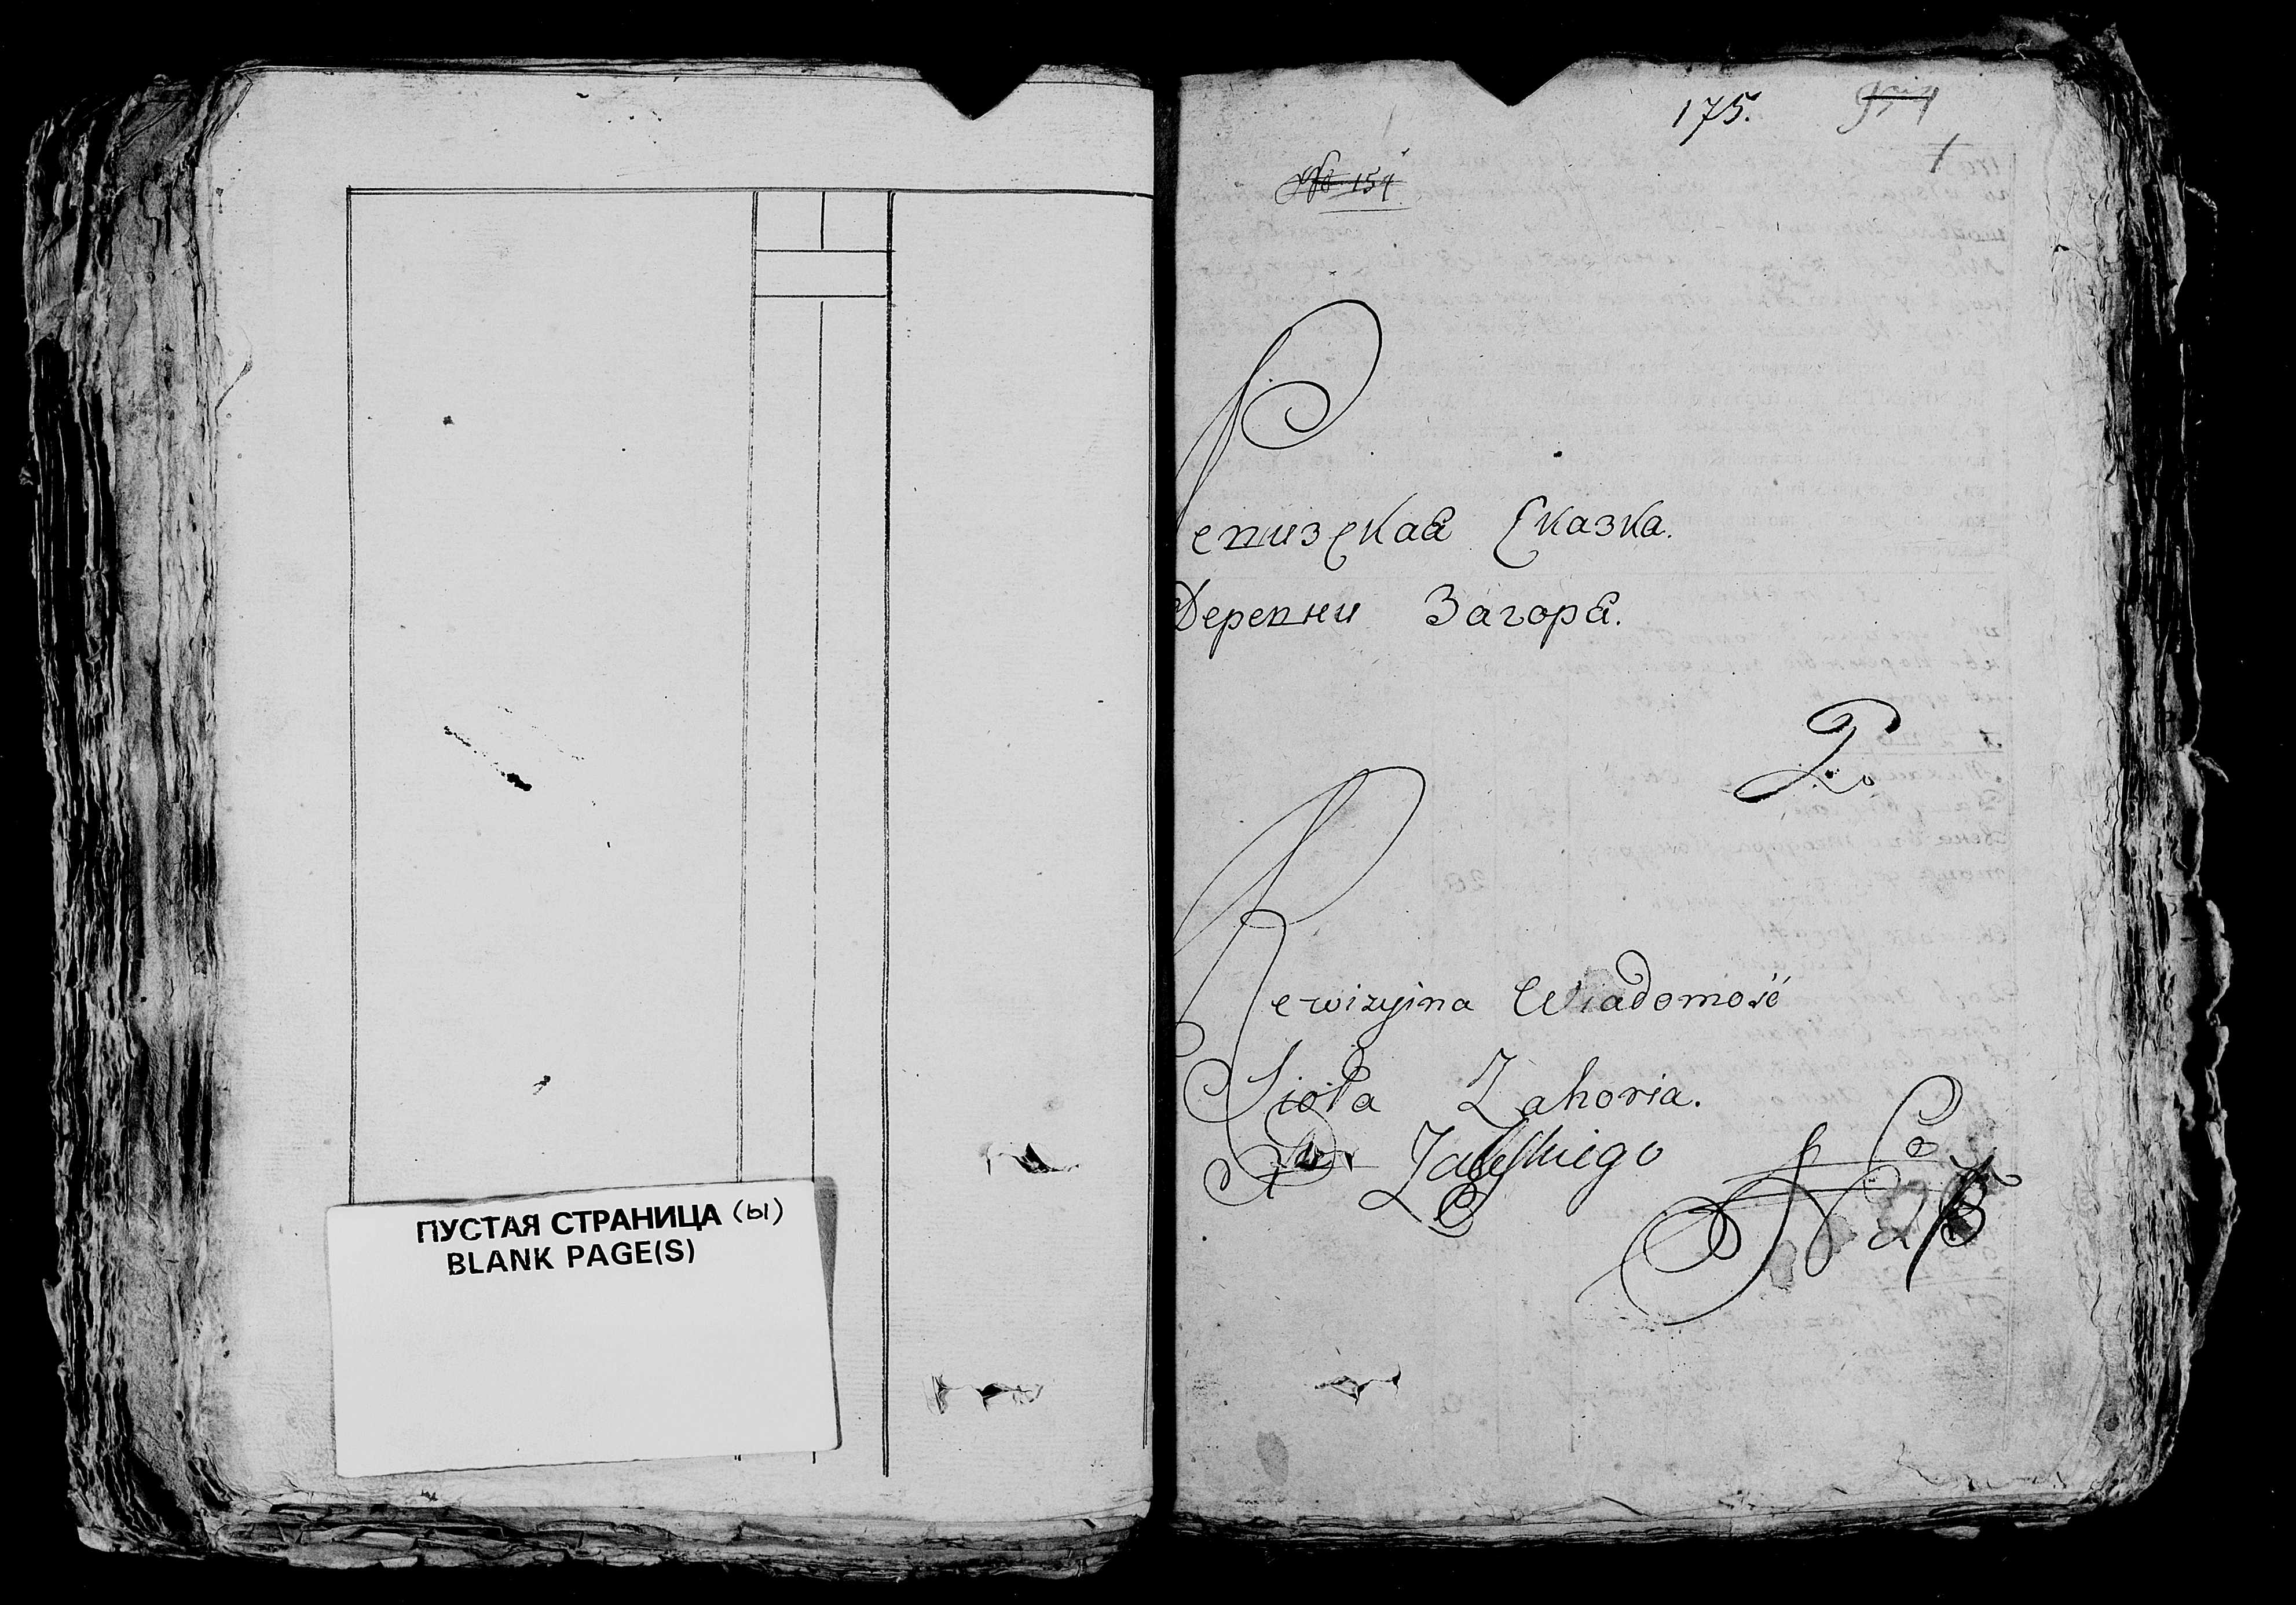 ПУСТАЯ СТРАНИЦА (Ы)
BLANK PAGE(S)
175.
№ 154
Ревизская Сказка.
Деревни Загоря.
Rewizyina Wiadomość
Sioła Zahoria.
Zaleskiego